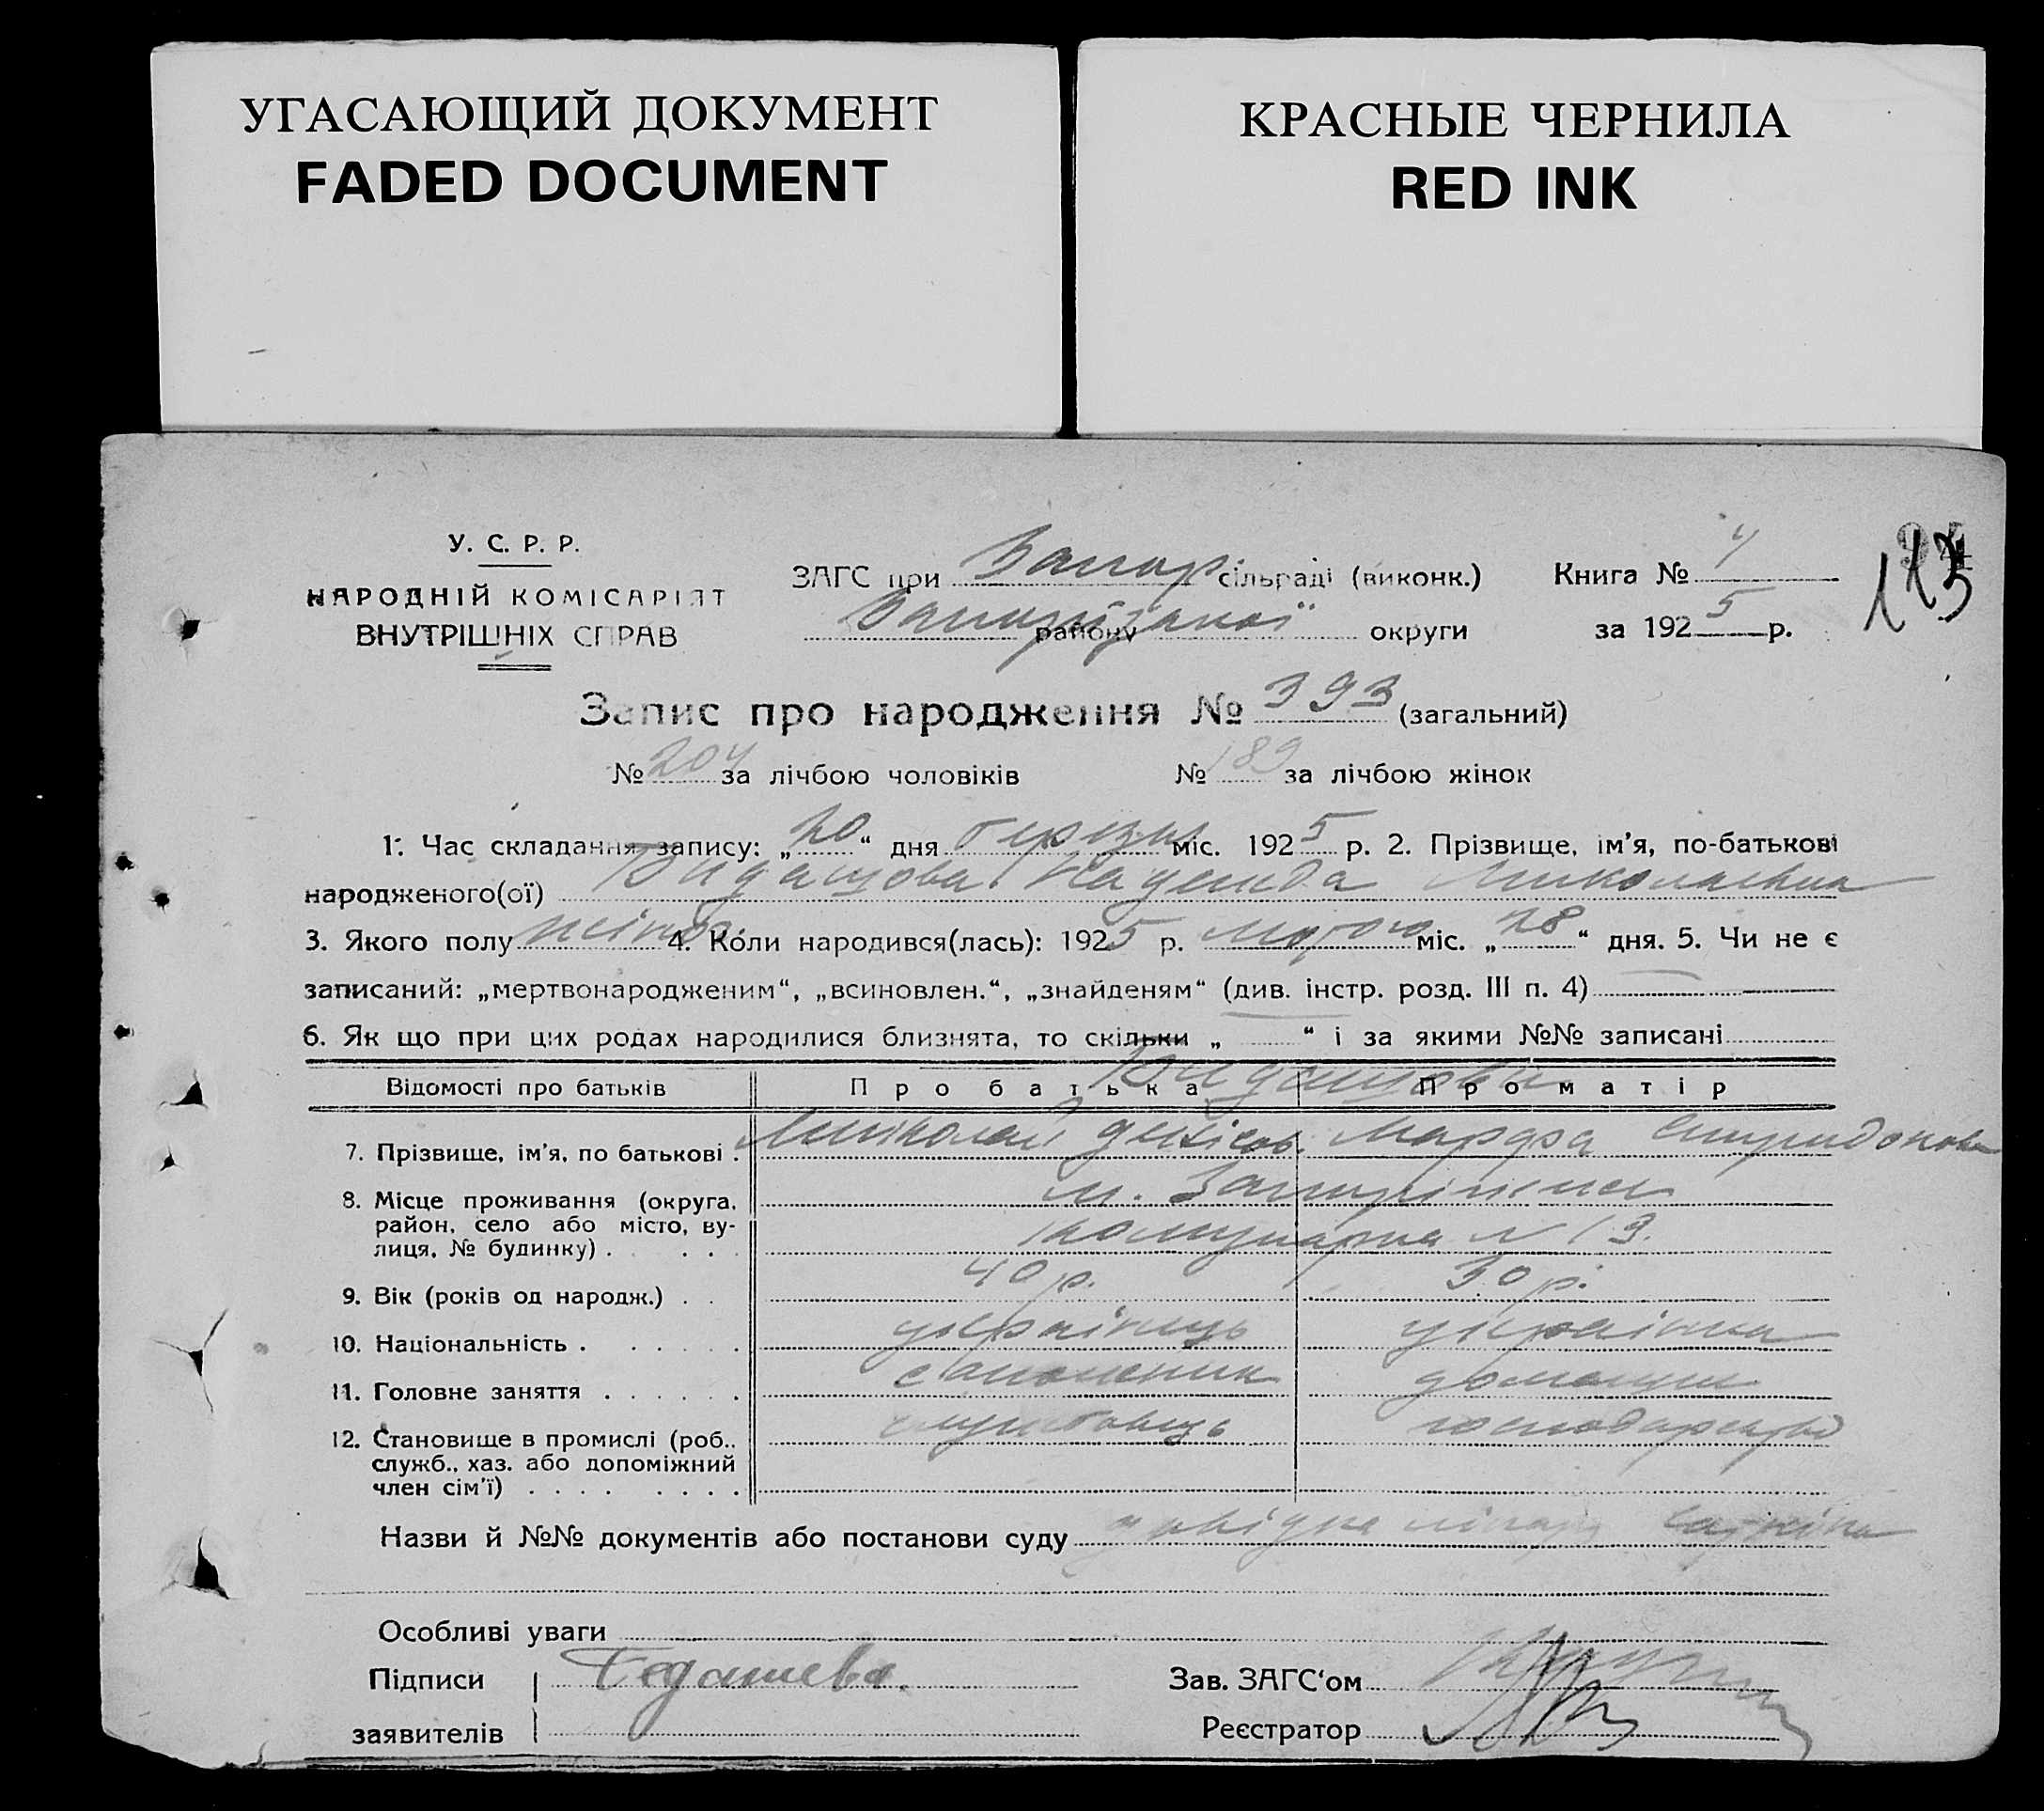 УГАСАЮЩИЙ ДОКУМЕНТ
FADED DOCUMENT
КРАСНЫЕ ЧЕРНИЛА
RED INK
У. С. Р. Р.
НАРОДНІЙ КОМІСАРІЯТ
ВНУТРІШНІХ СПРАВ
ЗАГС при Запор. сільраді (виконк.)
Запорізької району округи
Книга № 4
за 1925 р.
Запис про народження № 393 (загальний)
№ 204 за лічбою чоловіків № 189 за лічбою жінок
1. Час складання запису: „20“ дня березня міс. 1925 р. 2. Прізвище, ім'я, по-батькові
народженого(ої) Надежда Миколаевна
3. Якого полу жіноч. 4. Коли народився(лась): 1925 р. лютого міс. „28“ дня. 5. Чи не є
записаний: „мертвонародженим“, „всиновлен.“, „знайденям“ (див. інстр. розд. III п. 4)
6. Як що при цих родах народилися близнята, то скільки „ “ і за якими №№ записані
Відомості про батьків Про батька Про матір
7. Прізвище, ім'я, по батькові . Миколай Денісов. Марфа Спиридонов
8. Місце проживання (округа, м. Запоріжжя
район, село або місто, ву-
лиця, № будинку) . . . Комунарна № 13.
9. Вік (років од народж.) . . 40 р. 30 р.
10. Національність . . . . . . українець українка
11. Головне заняття . . . . . . домашнє
12. Становище в промислі (роб., службовець господарство
служб., хаз. або допоміжний
член сім'ї) . . . . . . . .
Назви й №№ документів або постанови суду довідка лікаря
Особливі уваги
Підписи Бедашева.
заявителів
Зав. ЗАГС'ом
Реєстратор